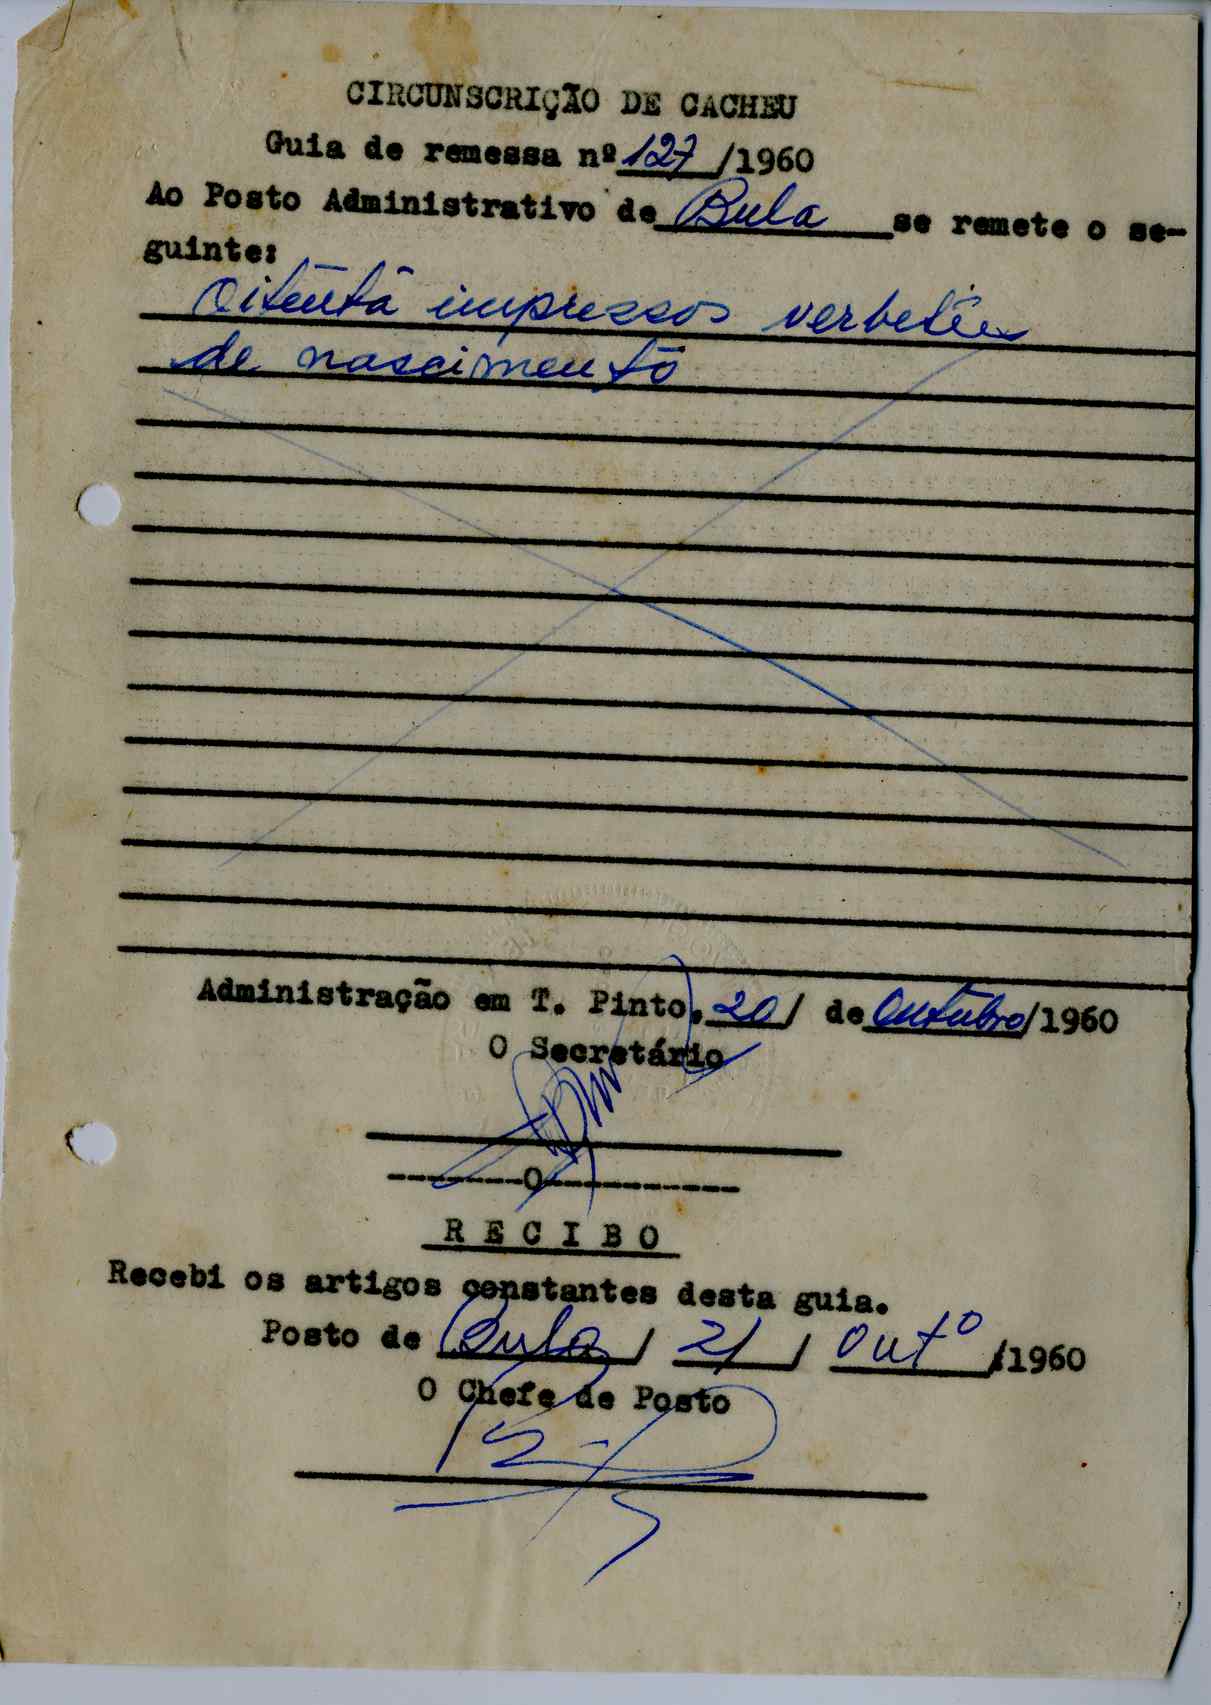 CIRCUNSCRIÇÃO DE CACHEU
Guia de remessa nº 127 /1960
Ao Posto Administrativo de Bula se remete o se-
guinte:
Oitenta impressos verbetes
de nascimento
Administração em T. Pinto, 20/ de Outubro/1960
O Secretário
---------O-------------
R E C I B O
Recebi os artigos constantes desta guia.
Posto de Bula / 21 / Outº /1960
O Chefe de Posto